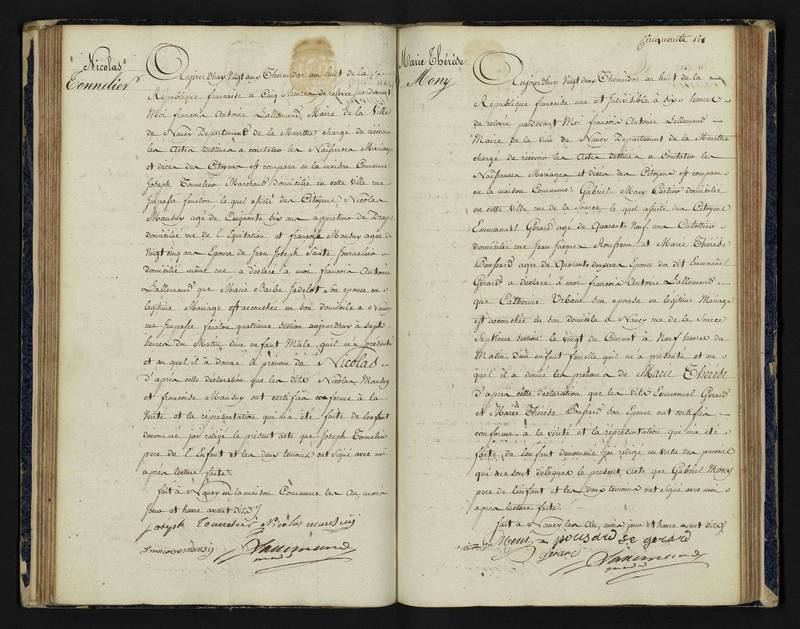 Nicolas
Tonnelier
Aujourd'huy Vingt deux Thermidor an huit de la
République française a Cinq heures de relevée pardevant
Moi françois Antoine Lallemand, Maire de la Ville
de Nancy Département de la Meurthe chargé de recevoir
les Actes destinés a constater les Naissances Mariages
et décès des Citoyens est comparu en la maison Commune
Joseph Tonnelier Marchand domicilié en cette Ville rue
fenelon, le quel assisté des Citoyens Nicolas
Mansuy agé de Cinquante six ans appreteur de Draps
domicilié rue de l'Equitation et françoise Mansuy agée de
vingt cinq ans Epouse de Jean Joseph Journalier
domicilié même rue a déclaré a moi françois Antoine
Lallemand que Marie Barbe Jadelot son épouse en
légitime Mariage est accouchée en son domicile a Nancy
rue fénélon quatrieme Section aujourd'huy à Sept
heures du Matin d'un enfant Mâle qu'il m'a présenté
et au quel il a donné le prénom de Nicolas
D'après cette déclaration que les dits Nicolas Mansuy
et françoise Mansuy ont certifiée conforme à la
Vérité et la représentation qui m'a été faite de l'enfant
dénommé j'ai rédigé le présent acte que Joseph Tonnelier
pere de l'Enfant et les deux témoins ont signé avec moi
après lecture faite.
fait à Nancy en la maison Commune les An, mois
jour et heure avant dits
Joseph Tonnelier Nicolas mansuy
Lallemand
Cinquante six
Marie Thérèse
Mony
Aujourd'huy Vingt deux Thermidor an huit de la
République française une et Indivisible à Six heures
de relevée pardevant Moi françois Antoine Lallemand
Maire de la Ville de Nancy Département de la Meurthe
chargé de recevoir les Actes destinés a Constater les
Naissances Mariages et décès des Citoyens est comparu
en la maison Commune Gabriel Mony domicilié
en cette Ville rue de la Source le quel assisté des Citoyens
Emmanuel Gérard agé de Quarante Neuf ans
domicilié rue Jean Jacques Rousseau et Marie Thérèse
Poussard agée de Quarante ans Epouse du dit Emmanuel
Gérard a déclaré à moi françois Antoine Lallemand
que Catherine Urbain son épouse en légitime Mariage
est accouchée en son domicile a Nancy rue de la Source
Septieme Section le vingt du Courant à Neuf heures du
Matin, d'un enfant femelle qu'il m'a présenté et au
quel il a donné les prénoms de Marie Thérèse
D'après cette déclaration que les dits Emmanuel Gérard
et Marie Thérèse Poussard son Epouse ont certifiée
conforme à la vérité et la représentation qui m'a été
faite de l'enfant dénommé j'ai rédigé en vertu des pouvoirs
qui me sont délégués le présent Acte que Gabriel Mony
pere de l'enfant et les deux témoins ont signé avec moi
après lecture faite.
fait a Nancy les An, mois jour et heure avant dits
G Mony pousard fe gerard
Gérard
Lallemand